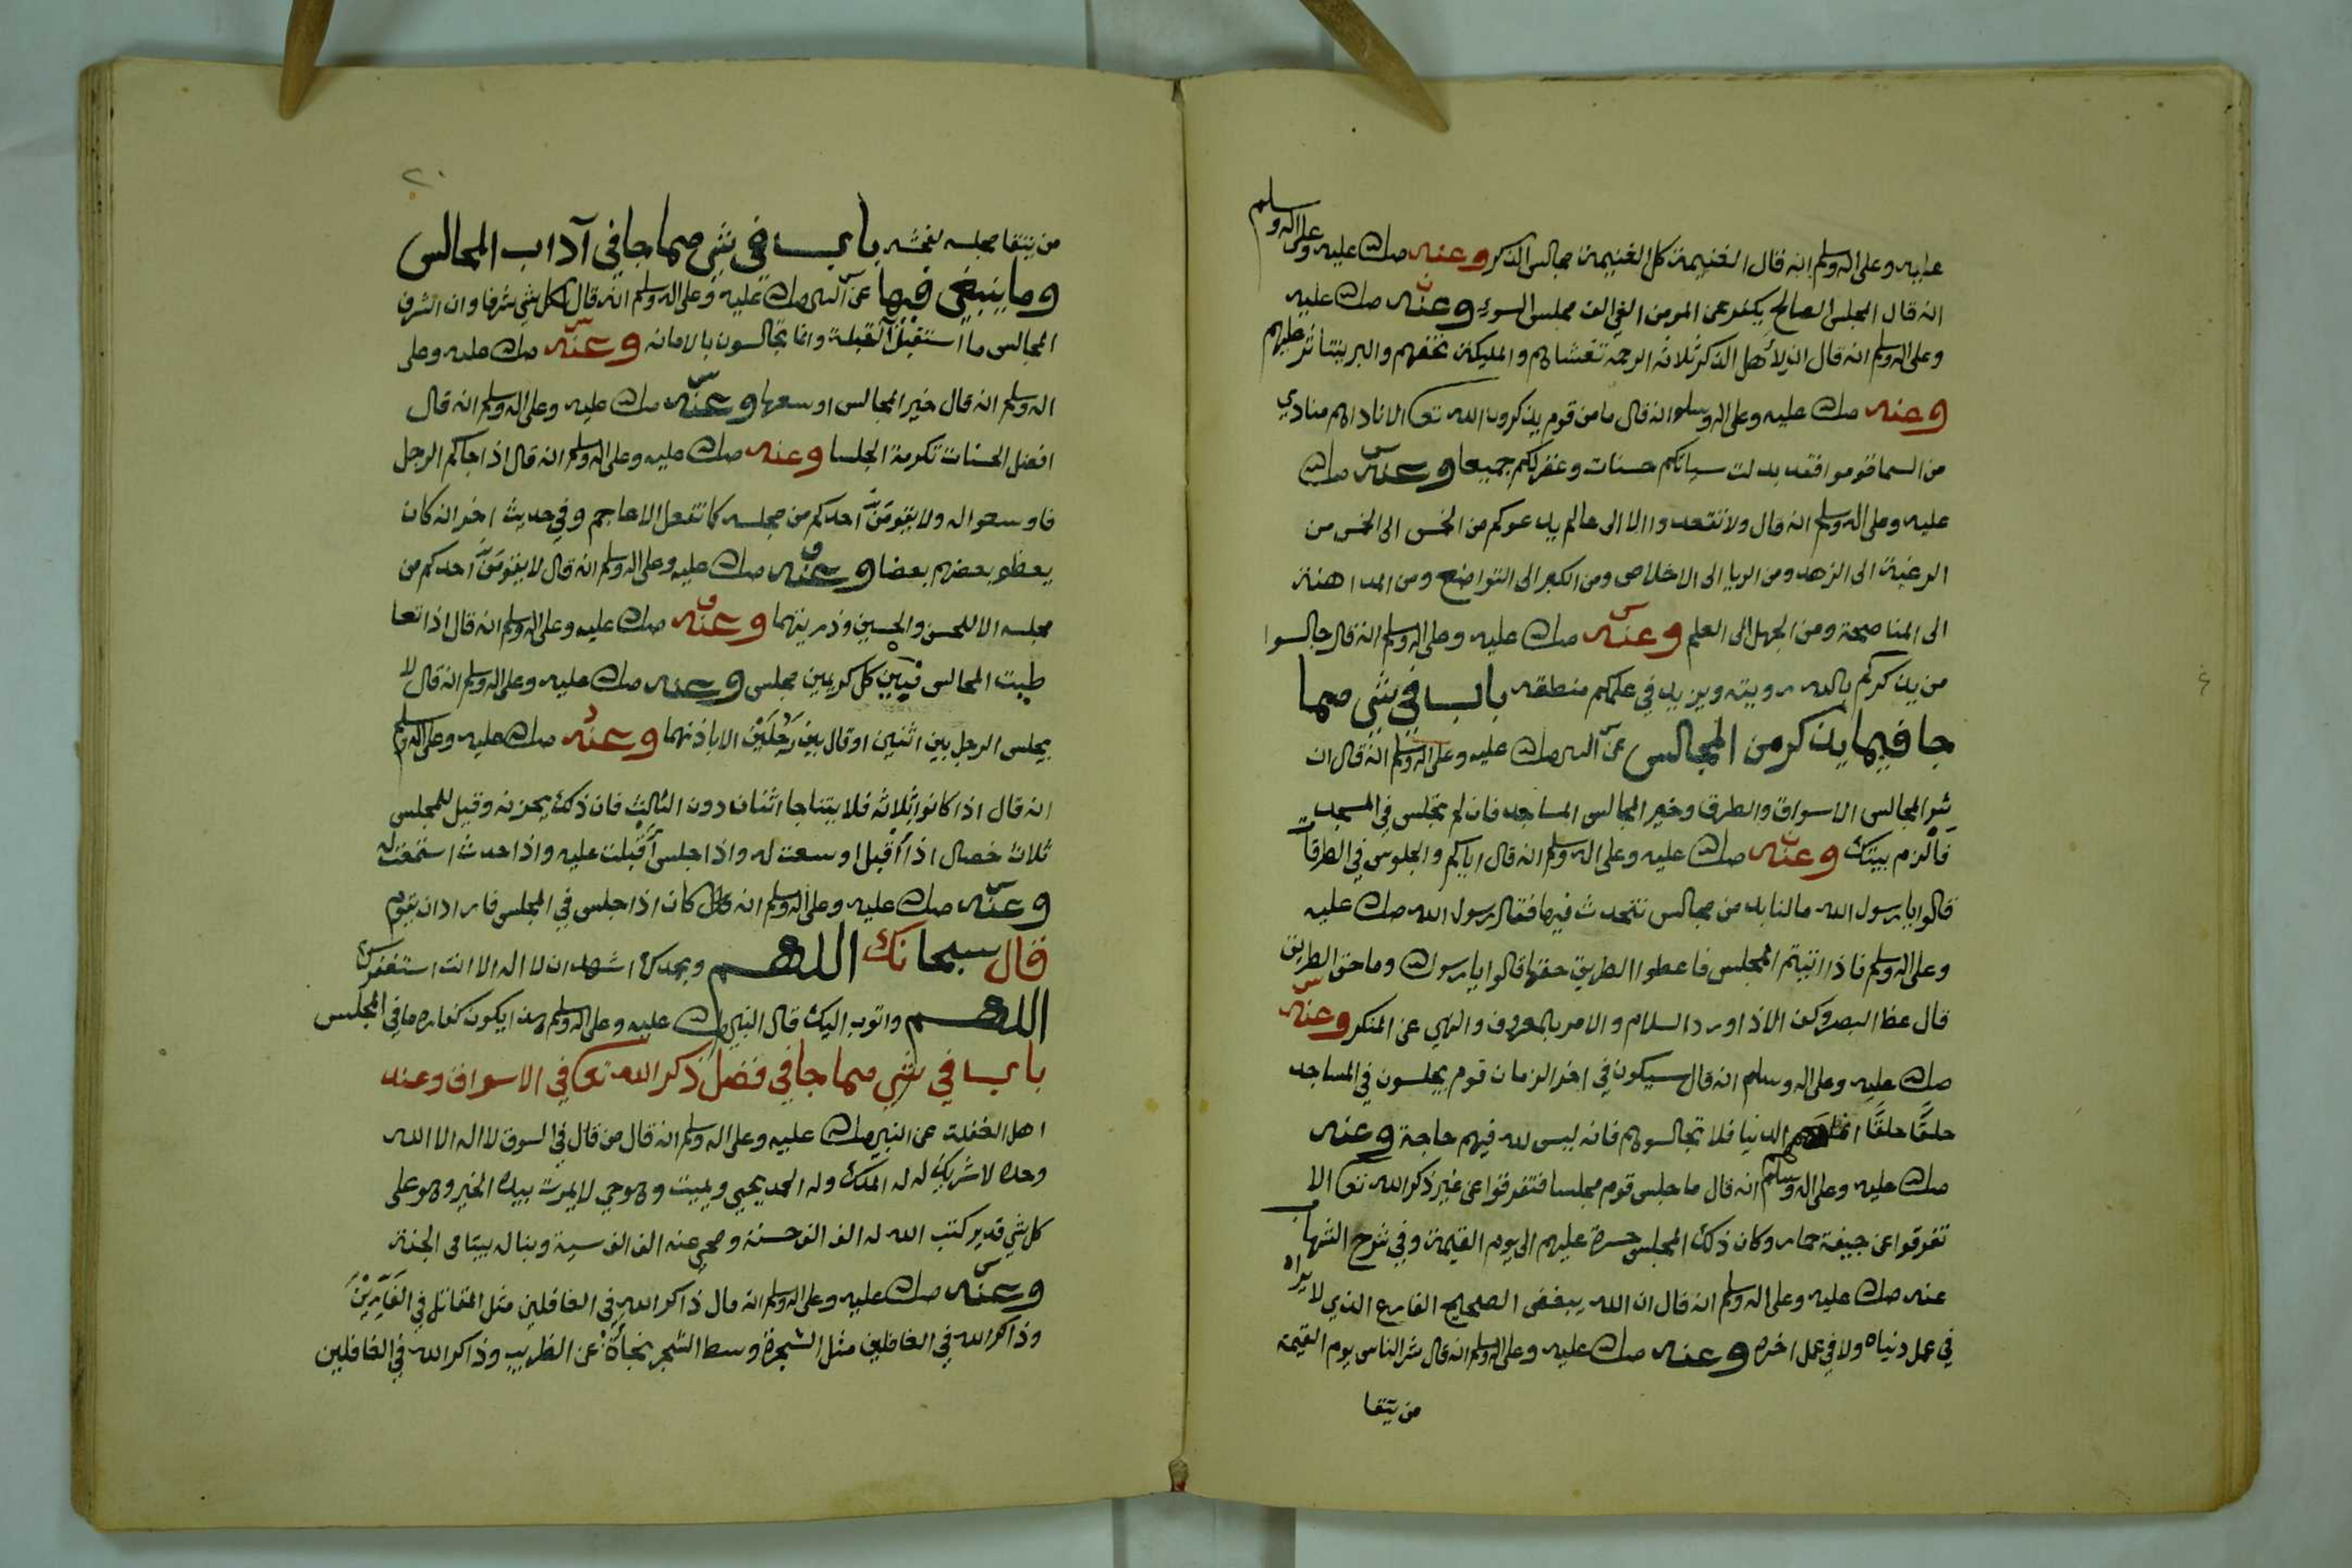 عليه وعلى اله وسلم انه قال الغنيمة كل الغنيمة مجالس الذكر وعنه صلى الله عليه وعلى اله وسلم
انه قال المجلس الصالح يكفر عن المومن الفي الف مجلس السوء وعنه صلى الله عليه
وعلى اله وسلم انه قال ان لأهل الذكر ثلاثة الرحمة تغشاهم والمليكة تحفهم والبر يتناثر عليهم
وعنه صلى الله عليه وعلى اله وسلم انه قال ما من قوم يذكرون الله تعا الا ناداهم منادي
من السما قوموا فقد بدلت سياتكم حسنات وغفر لكم جميعا وعنه صلى الله
عليه وعلى اله وسلم انه قال ولا تقعدوا الا الى عالم يدعوكم من الخمس الى الخمس من
الرغبة الى الزهد ومن الريا الى الاخلاص ومن الكبر الى التواضع ومن المداهنة
الى المناصحة ومن الجهل الى العلم وعنه صلى الله عليه وعلى اله وسلم انه قال جالسوا
من يذكركم بالله رويته ويزيد في علمكم منطقه باب في شي مما
جا فيما يذكر من المجالس عن النبي صلى الله عليه وعلى اله وسلم انه قال ان
شر المجالس الاسواق والطرق وخير المجالس المساجد فان لم تجلس في المسجد
فالزم بيتك وعنه صلى الله عليه وعلى اله وسلم انه قال اياكم والجلوس في الطرقات
قالوا يا رسول الله ما لنا بد من مجالس نتحدث فيها فقال رسول الله صلى الله عليه
وعلى اله وسلم فاذا اتيتم المجلس فاعطوا الطريق حقها قالوا يا رسول الله وما حق الطريق
قال غظ البصر وكف الاذا ورد السلام والامر بالمعروف والنهي عن المنكر وعنه
صلى الله عليه وعلى اله وسلم انه قال سيكون في اخر الزمان قوم يجلسون في المساجد
حلقًا حلقًا انما همهم الدنيا فلا تجالسوهم فانه ليس لله فيهم حاجة وعنه
صلى الله عليه وعلى اله وسلم انه قال ما جلس قوم مجلسا فتفرقوا عن غير ذكر الله تعا الا
تفرقوا عن جيفة حمار وكان ذلك المجلس حسرة عليهم الى يوم القيمة وفي شرح الشهاب
عنه صلى الله عليه وعلى اله وسلم انه قال ان الله يبغض الصحيح الفارع الذي لا يراه
في عمل دنياه ولا في عمل اخره وعنه صلى الله عليه وعلى اله وسلم انه قال شر الناس يوم القيمة
من يتقا
٢٠
من يتقا مجلسه لفحشه باب في شي مما جا في آداب المجالس
وما ينبغي فيها عن النبي صلى الله عليه وعلى اله وسلم انه قال لكل شي شرفا وان اشرف
المجالس ما استقبل القبلة وانما تجالسون بالامانه وعنه صلى الله عليه وعلى
اله وسلم انه قال خير المجالس اوسعها وعنه صلى الله عليه وعلى اله وسلم انه قال
افضل الحسنات تكرمة الجلسا وعنه صلى الله عليه وعلى اله وسلم انه قال اذا جاكم الرجل
فاوسعوا له ولا يقومنّ احدكم من مجلسه كما تفعل الاعاجم وفي حديث اخر انه كان
يعظم بعضهم بعضا وعنه صلى الله عليه وعلى اله وسلم انه قال لا يقومنّ احدكم من
مجلسه الا للحسن والحسين وذريتهما وعنه صلى الله عليه وعلى اله وسلم انه قال اذا تعا
طيت المجالس فبين كل كريمين مجلس وعنه صلى الله عليه وعلى اله وسلم انه قال لا
يجلس الرجل بين اثنين او قال بين رجلين الا باذنهما وعنه صلى الله عليه وعلى اله وسلم
انه قال اذا كانوا ثلاثة فلا يتناجا اثنان دون الثالث فان ذلك يحزنه وقيل للمجلس
ثلاث خصال اذا أقبل اوسعت له واذا جلس أقبلت عليه واذا حدث استمعت له
وعنه صلى الله عليه وعلى اله وسلم انه كان اذا جلس في المجلس فاراد ان يقوم
قال سبحانك اللهم وبحمدك اشهد ان لا اله الا انت استغفرك
اللهم واتوب اليك قال النبي صلى الله عليه وعلى اله وسلم هذا يكون كفاره ما في المجلس
باب في شي مما جا في فضل ذكر الله تعا في الاسواق وعند
اهل الغفلة عن النبي صلى الله عليه وعلى اله وسلم انه قال من قال في السوق لا اله الا الله
وحده لا شريك له له الملك وله الحمد يحيي ويميت وهو حي لا يموت بيده الخير وهو على
كل شي قدير كتب الله له الف الف حسنة ومحي عنه الف الف سية وبنا له بيتا في الجنة
وعنه صلى الله عليه وعلى اله وسلم انه قال ذاكر الله في الغافلين مثل المقاتل في الفارين
وذاكر الله في الغافلين مثل الشجرة وسط الشجر وذاكر الله في الغافلين